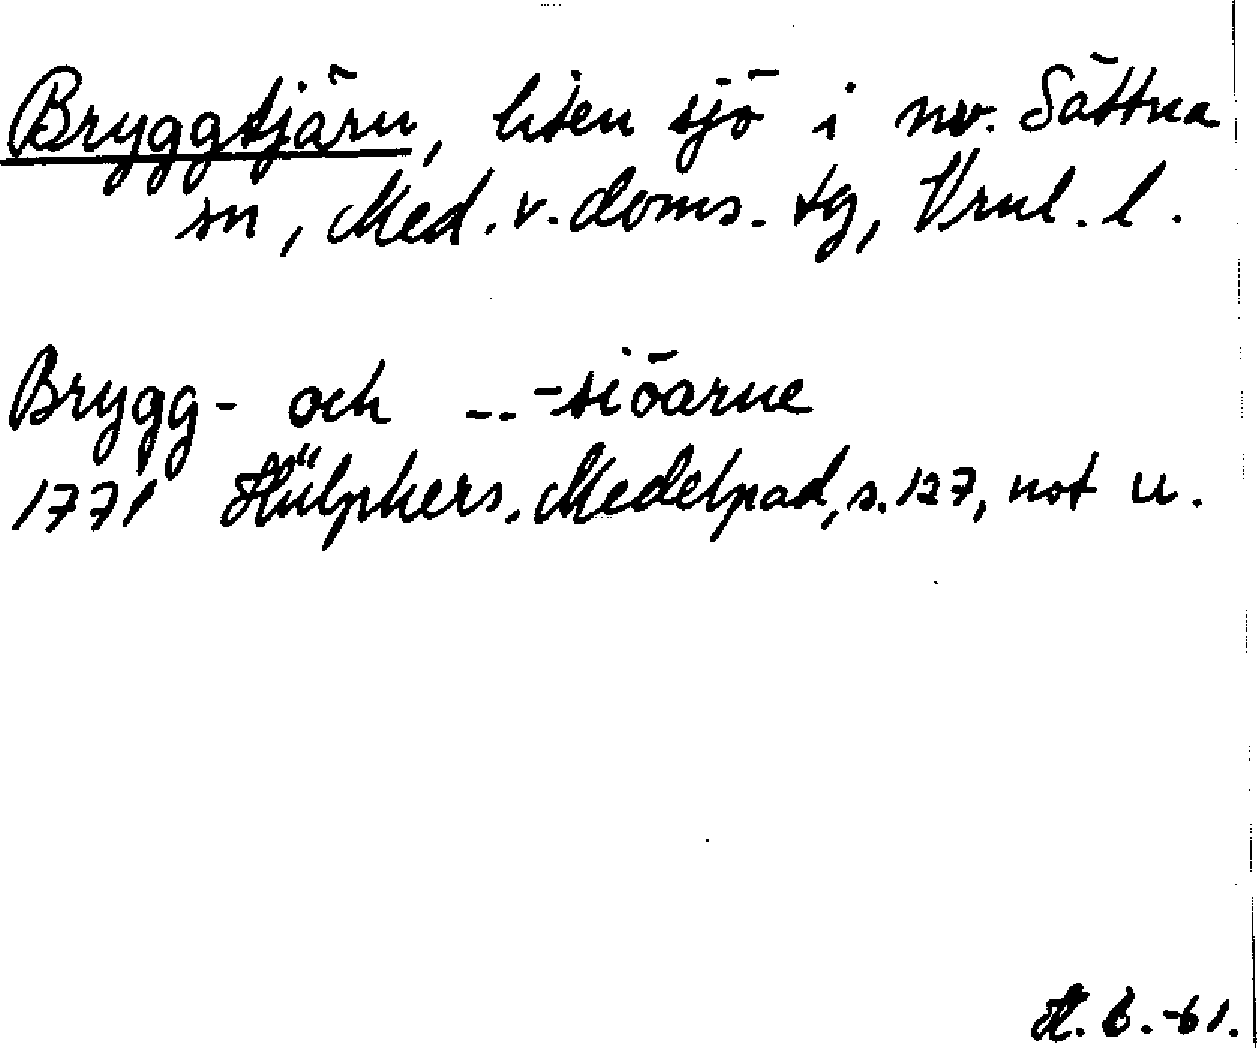 Bryggtjärn, liten sjö i nv. Sättna
sn, Med. v. doms. tg, Vrnl. l.
Brygg- och --- siöarne
1771 Hülphers, Medelpad, s. 127, not u.
H. B. -61.